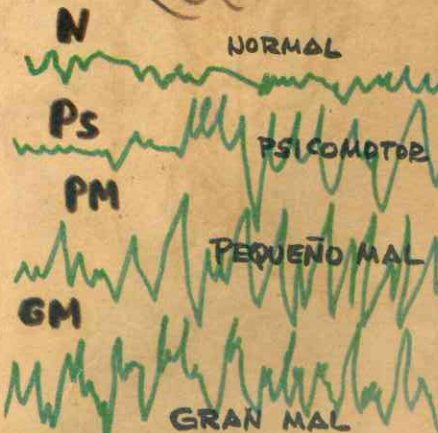 N
NORMAL
Ps
PSICOMOTOR
PM
PEQUEÑO MAL
GM
GRAN MAL